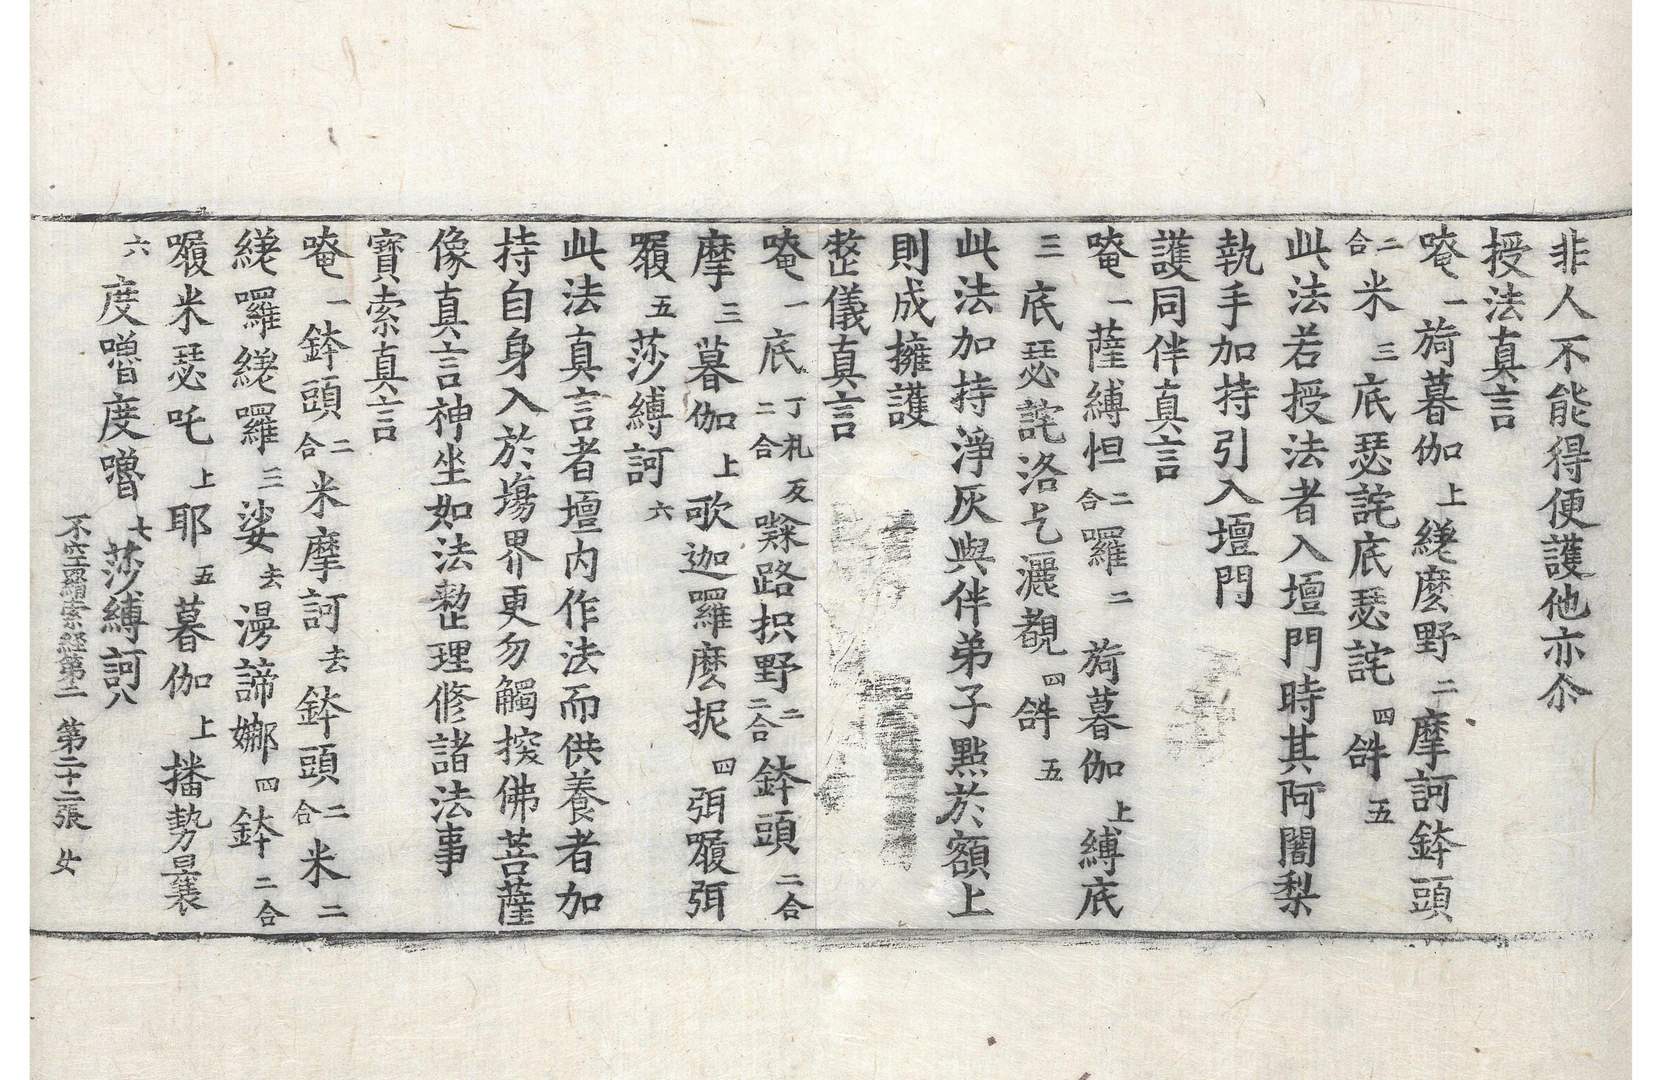 非人不能得便護他亦尒
授法真言
唵一旖暮伽上緩麽野二摩訶鉢頭
二合米三底瑟詫底瑟詫四𤙖五
此法若授法者入壇門時其阿闍梨
執手加持引入壇門
護同伴真言
唵一薩縛怛二合囉二旖暮伽上縛底
三底瑟詫洛乞灑覩四𤙖五
此法加持淨灰與伴弟子點於額上
則成擁護
整儀真言
唵一底丁礼反二合路抧野二二合鉢頭二合
摩三暮伽上歌迦囉麽抳四弭履弭
履五莎縛訶六
此法真言者壇內作法而供養者加
持自身入於塲界更勿觸揬佛菩薩
像真言神坐如法整理修諸法事
寶索真言
唵一鉢頭二合米摩訶去鉢頭二合米二
緩囉緩囉三娑去漫諦娜四鉢二合
履米瑟吒上耶五暮伽上播勢曩
六度嚕度嚕七莎縛訶八
不空羂索経第二 第二十二張 女